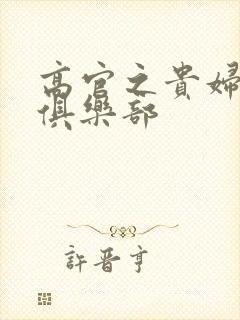 高官之貴婦
俱樂部
許晋亨